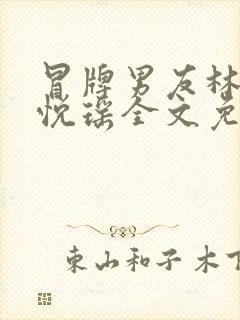 冒牌男友林
悦瑶全文免
东山和子木下